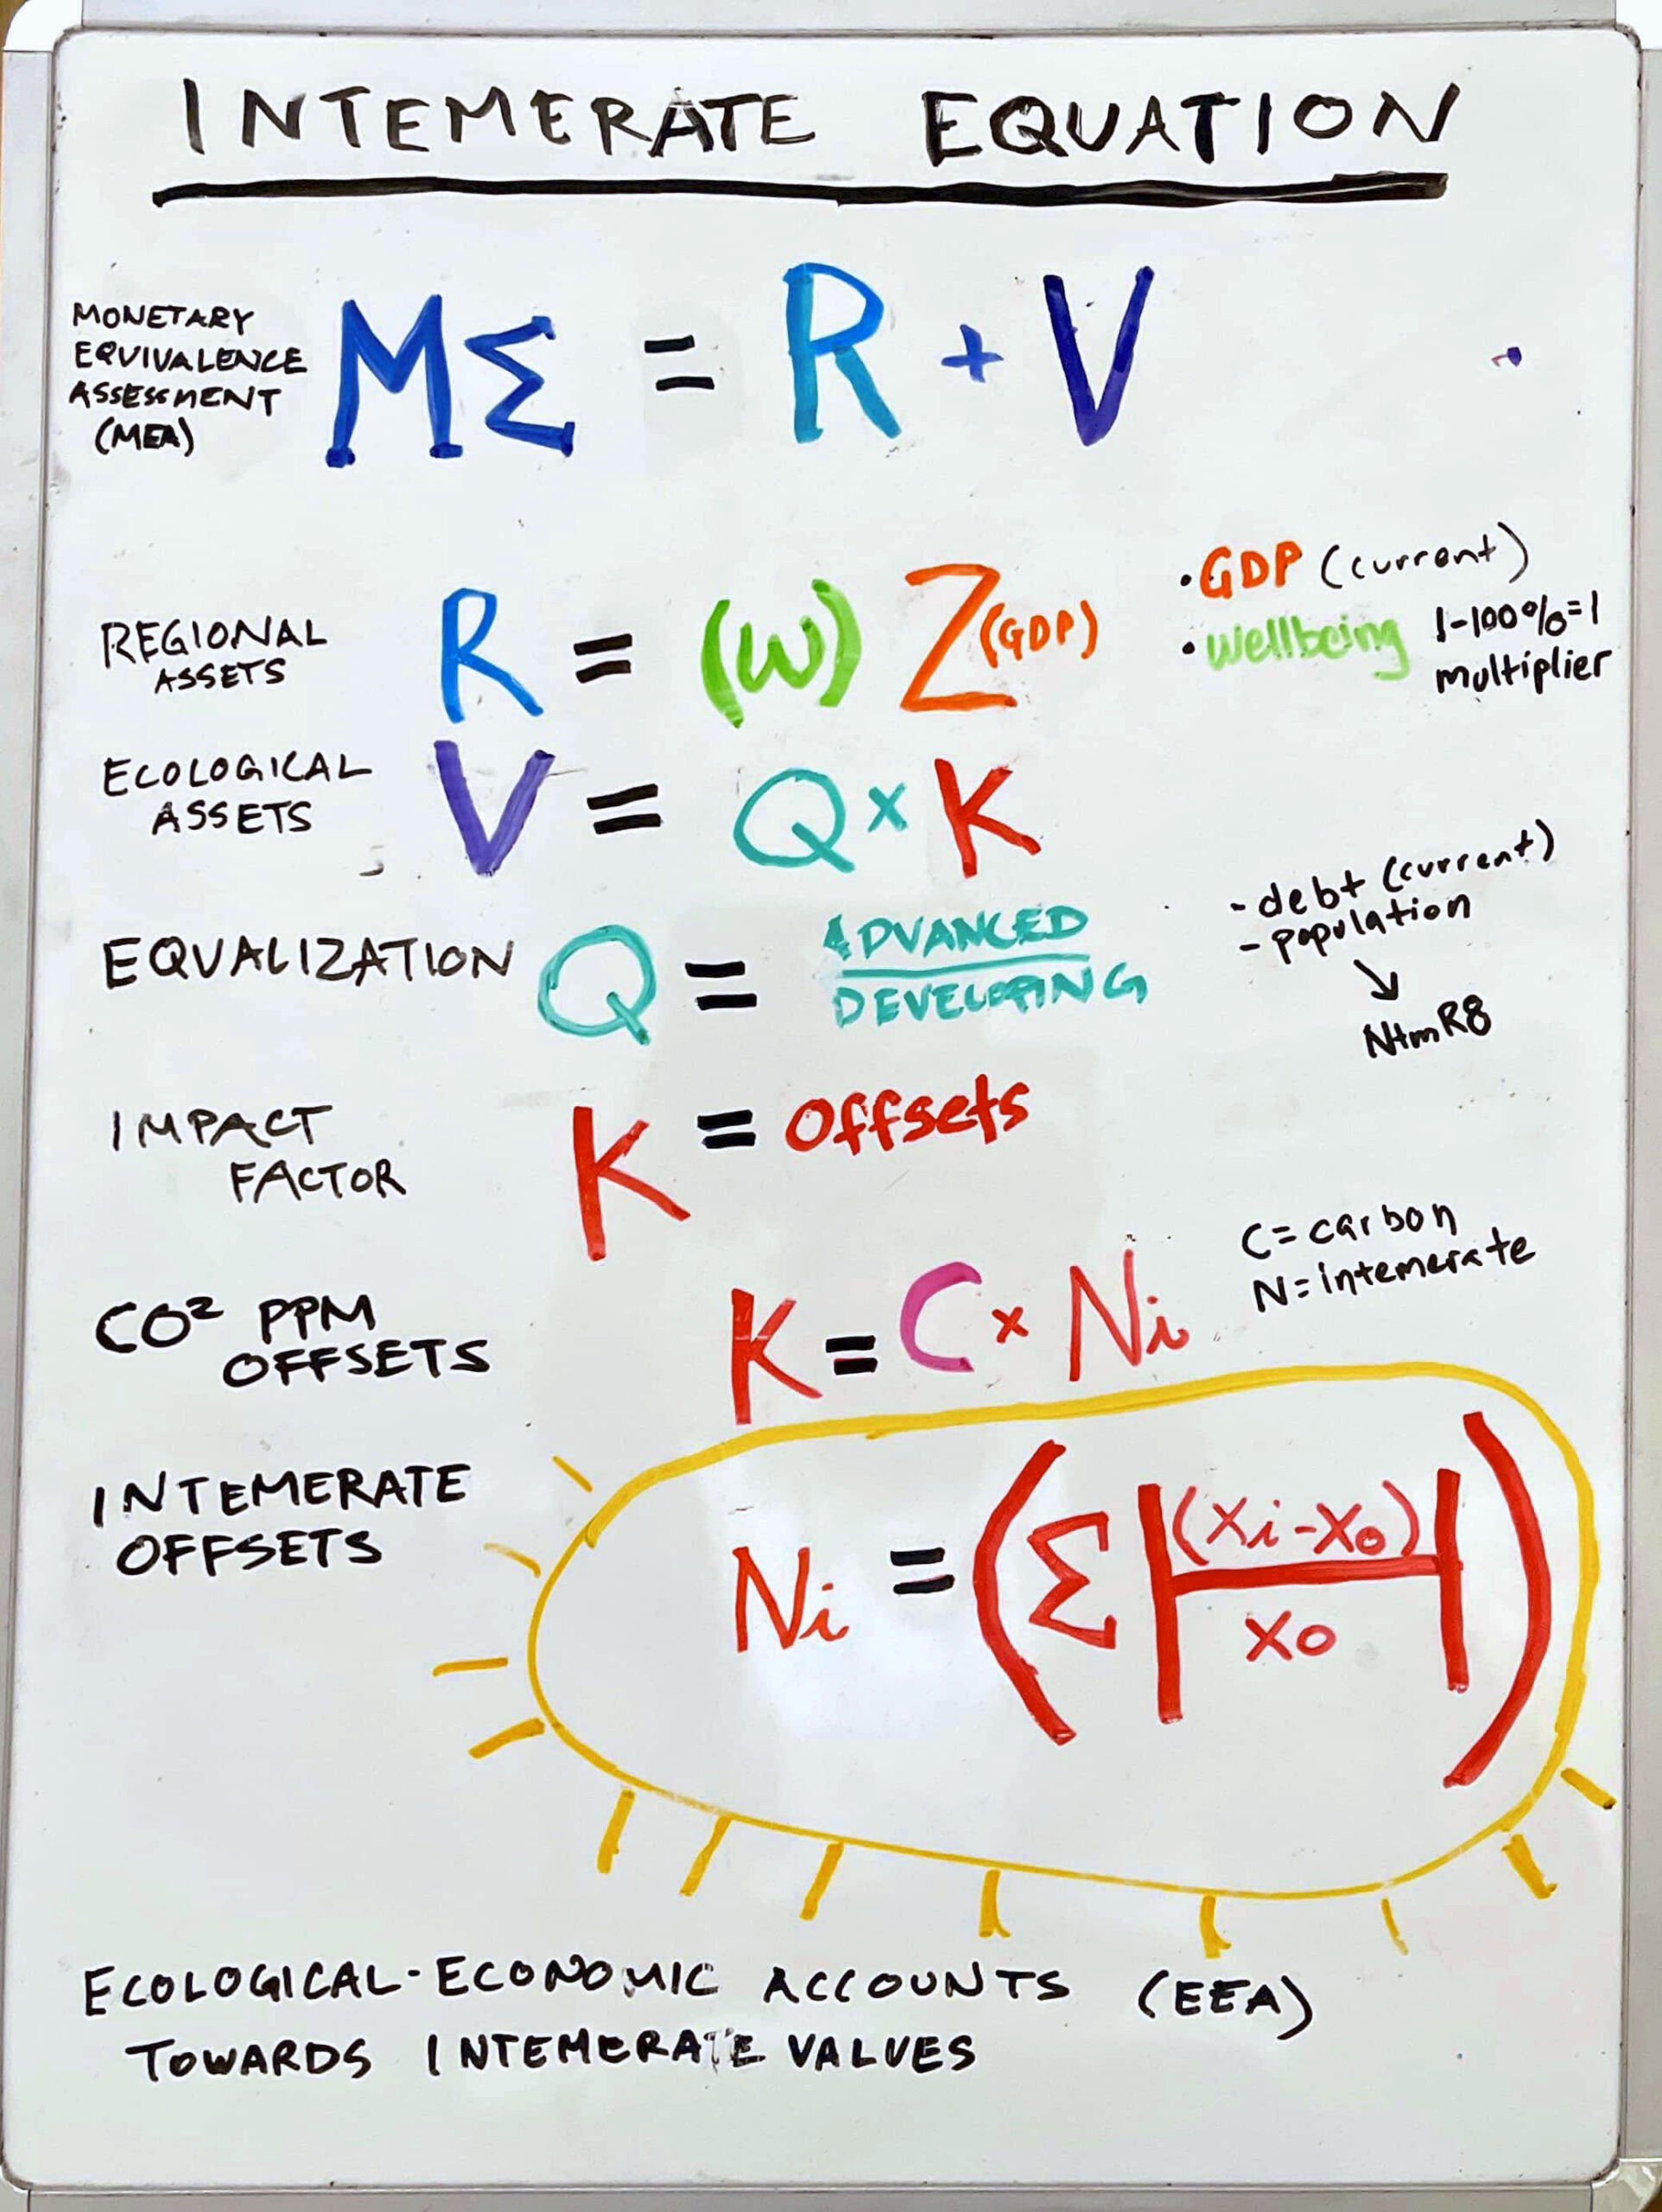 INTEMERATE EQUATION
MONETARY
EQUIVALENCE
ASSESSMENT
(MEA)
MΣ = R + V
REGIONAL
ASSETS
R = (W) Z(GDP)
• GDP (current)
• Wellbeing 1-100%=1
multiplier
ECOLOGICAL
ASSETS
V = Q × K
EQUALIZATION
Q = ADVANCED
DEVELOPING
- debt (current)
- population
↘
NtmR8
IMPACT
FACTOR
K = Offsets
CO² PPM
OFFSETS
K = C × Ni
C = carbon
N = intemerate
INTEMERATE
OFFSETS
Ni = (Σ|(Xi-Xo)
Xo|)
ECOLOGICAL-ECONOMIC ACCOUNTS (EEA)
TOWARDS INTEMERATE VALUES